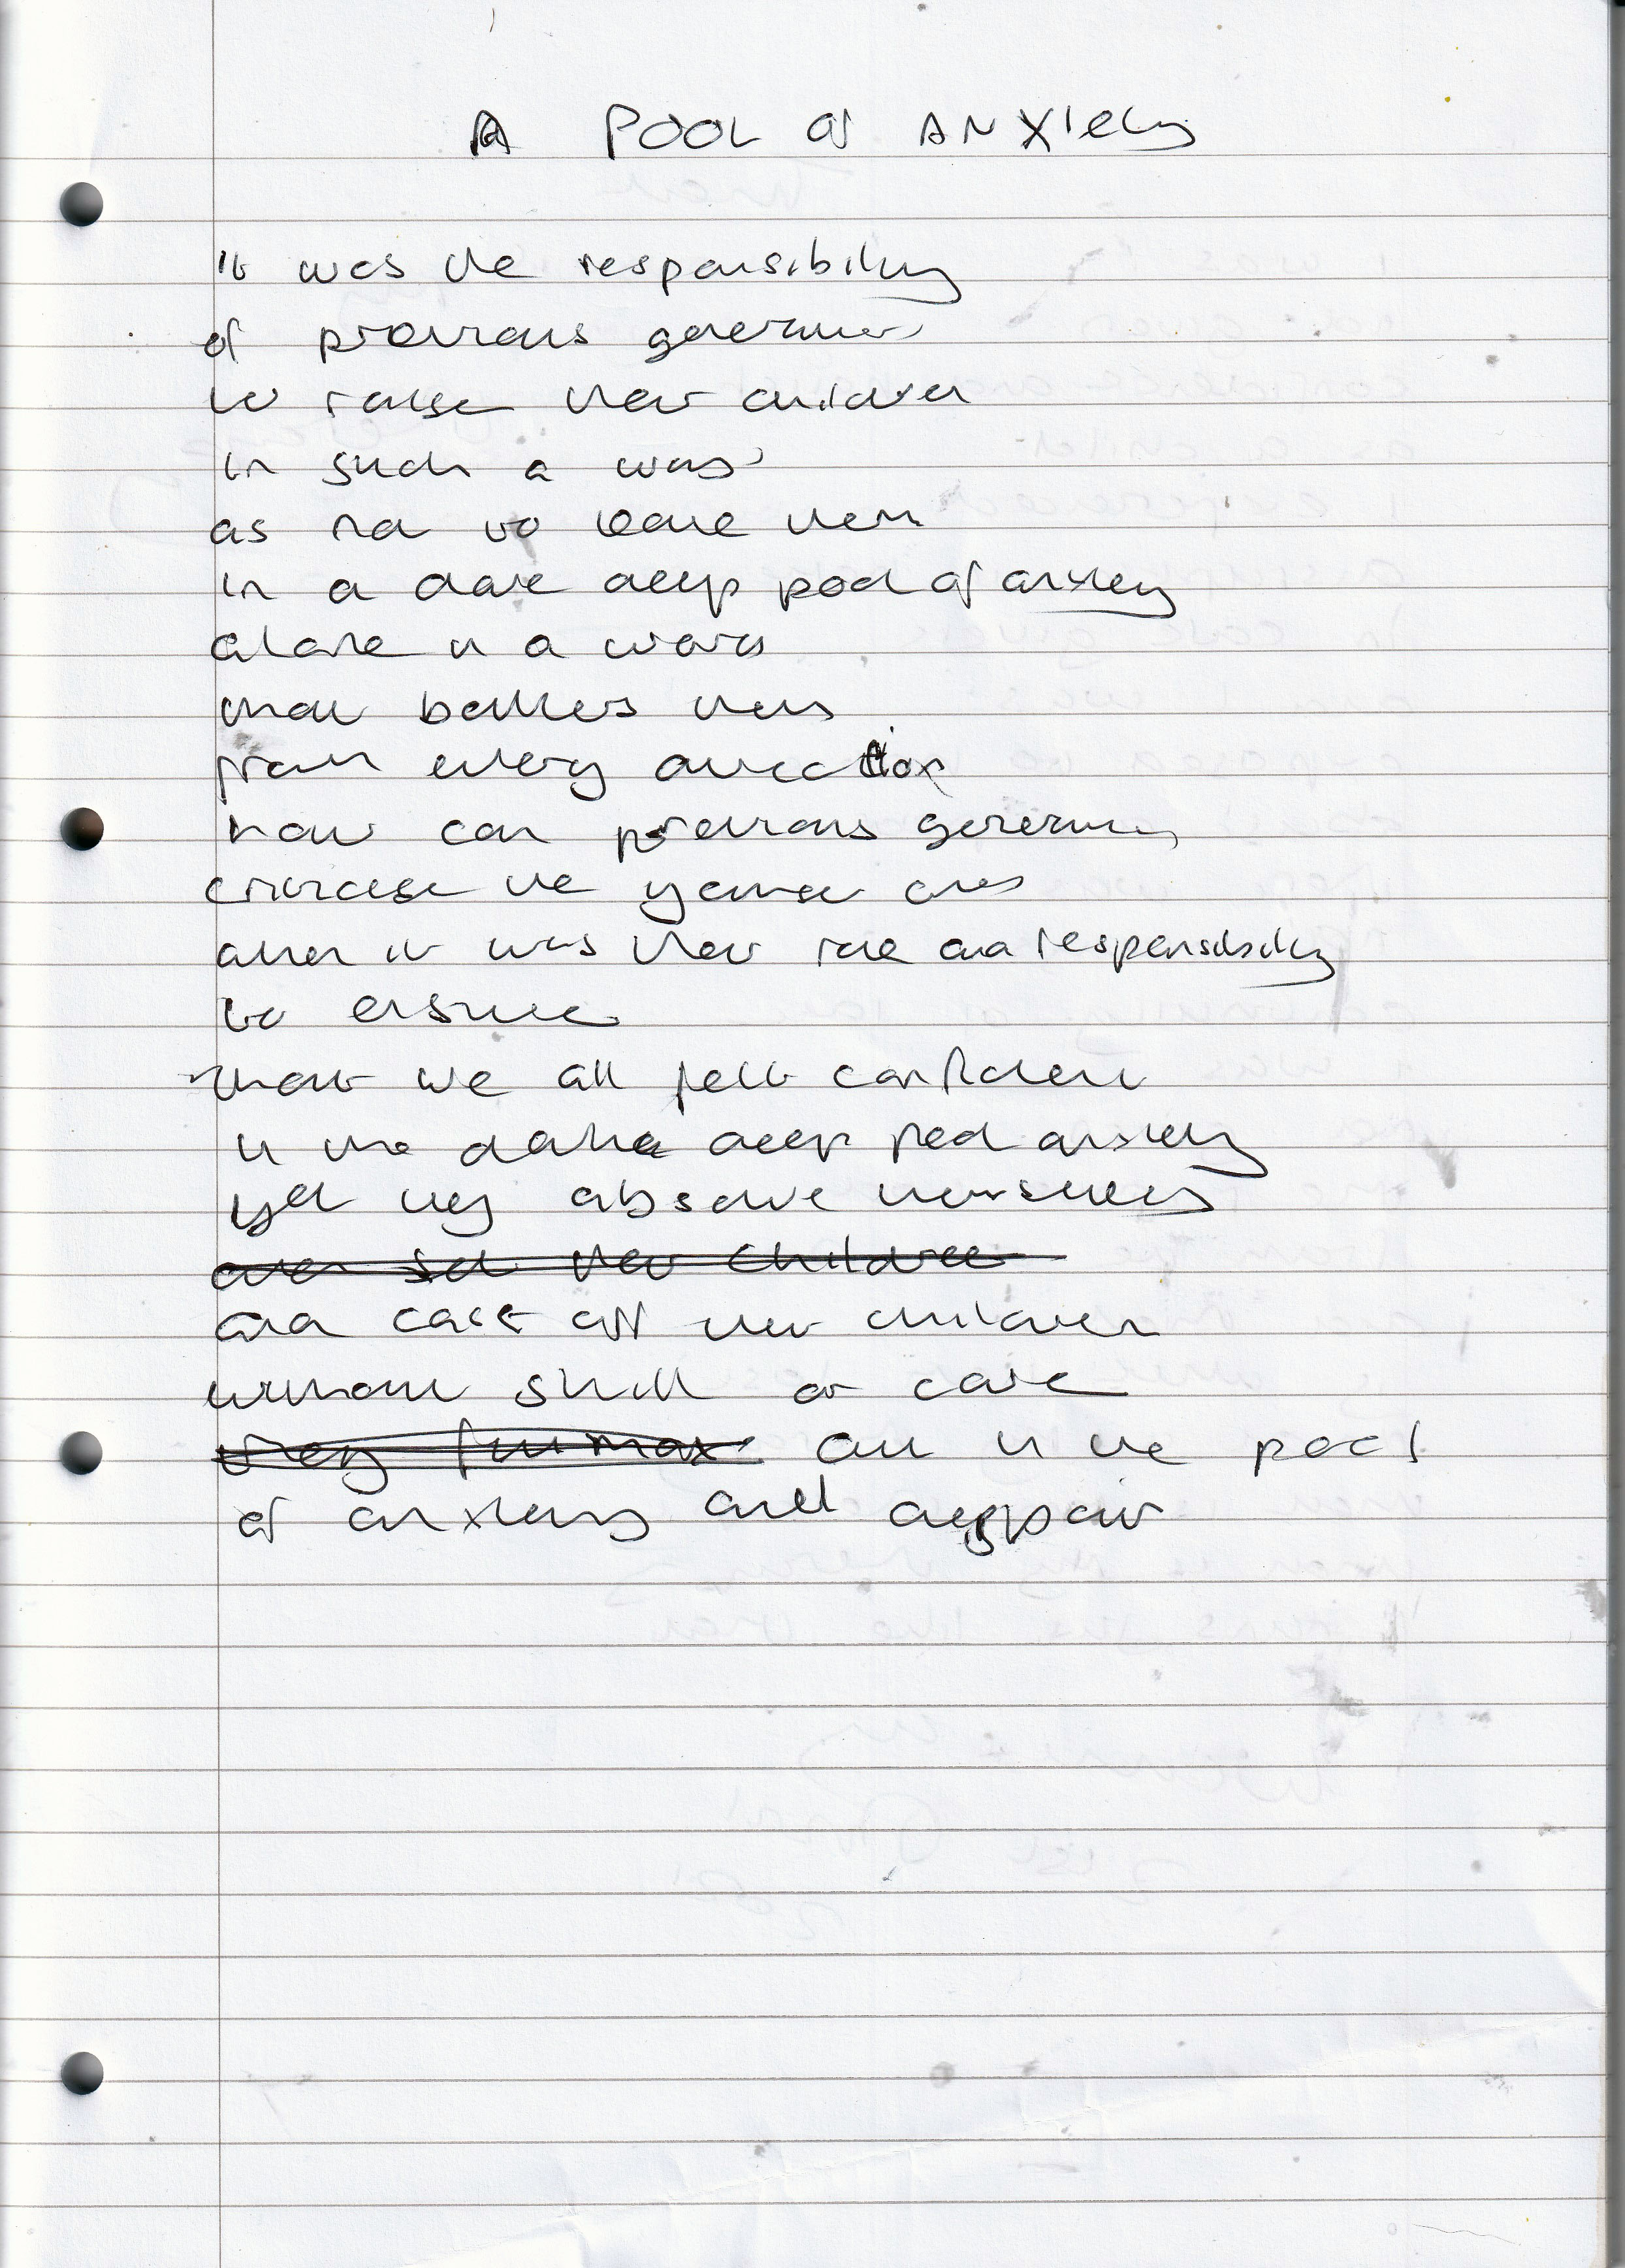 A POOL of ANXIETY
It was the responsibility
of previous
to raise their children
in such a way
as not to leave them
in a dark deep pool of anxiety
alone in a world
that batters them
from every direction
how can previous
criticise the younger ones
when it was their role and responsibility
to ensure
that we all felt confident
in the deep anxiety
yet they absolve themselves
their children
and cast off their children
without skill or care
in the pool
of anxiety and despair